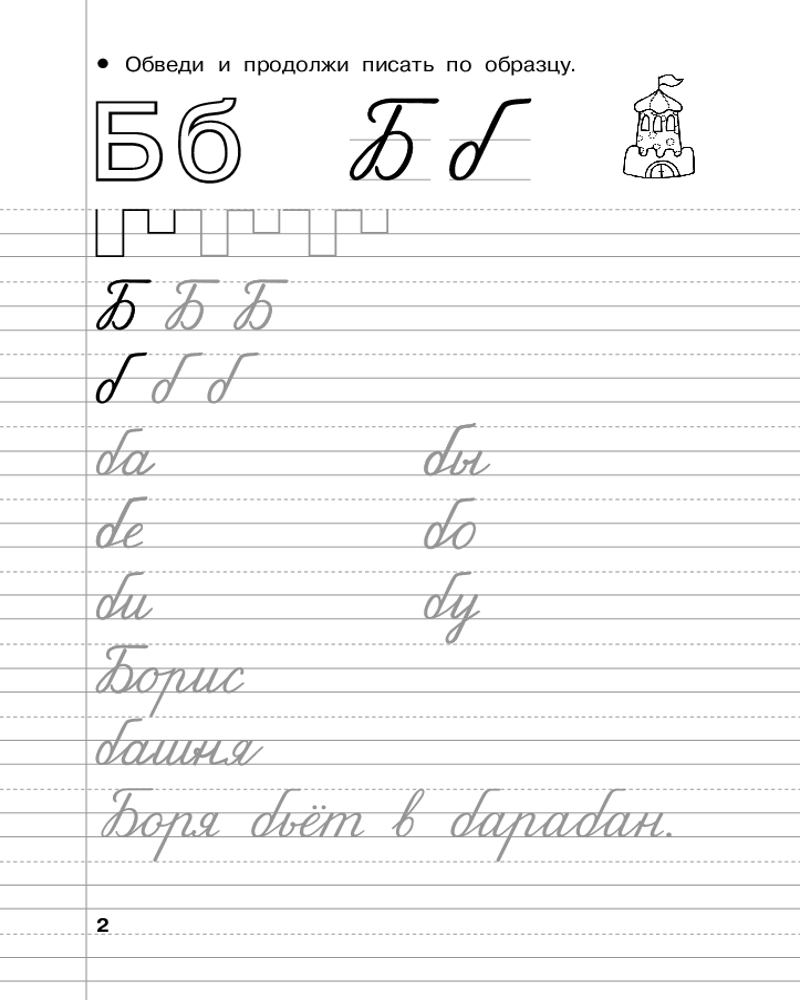 • Обведи и продолжи писать по образцу.
Бб Б б
Б Б Б
б б б
ба бы
бе бо
би бу
Борис
башня
Боря бьёт в барабан.
2